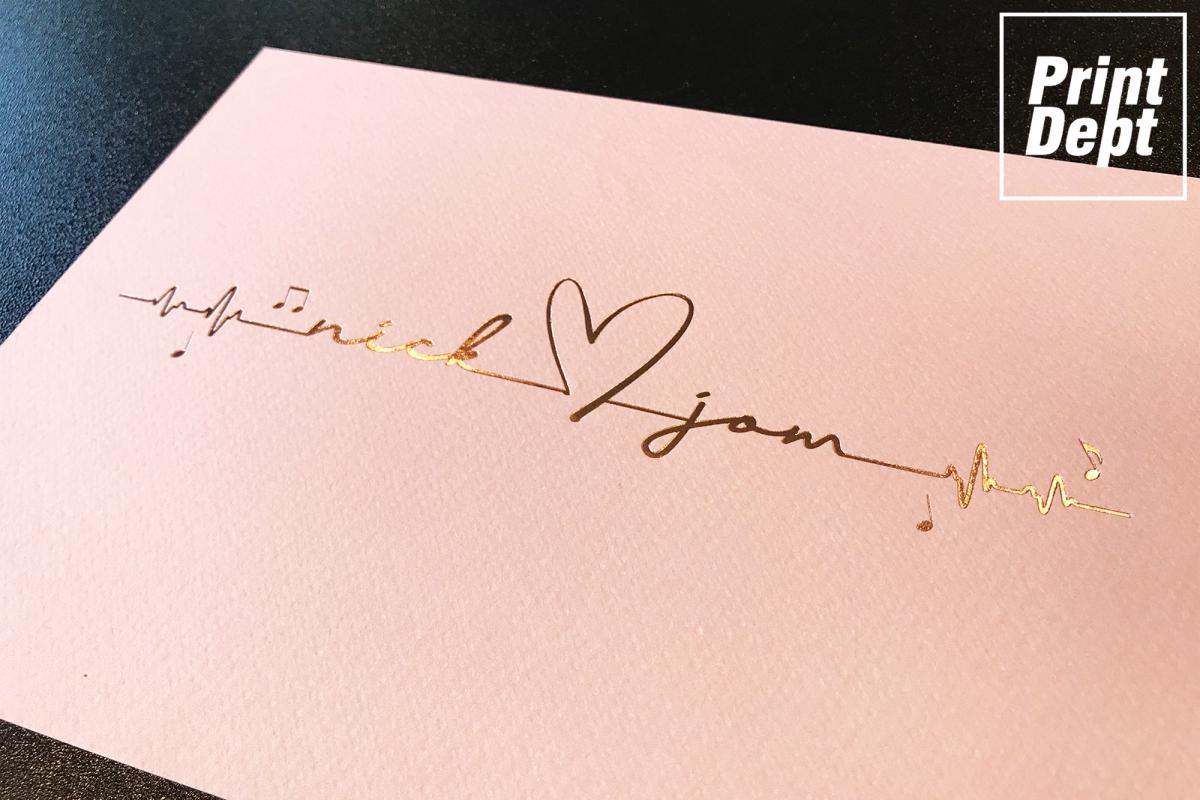 Print
Dept
nick jam